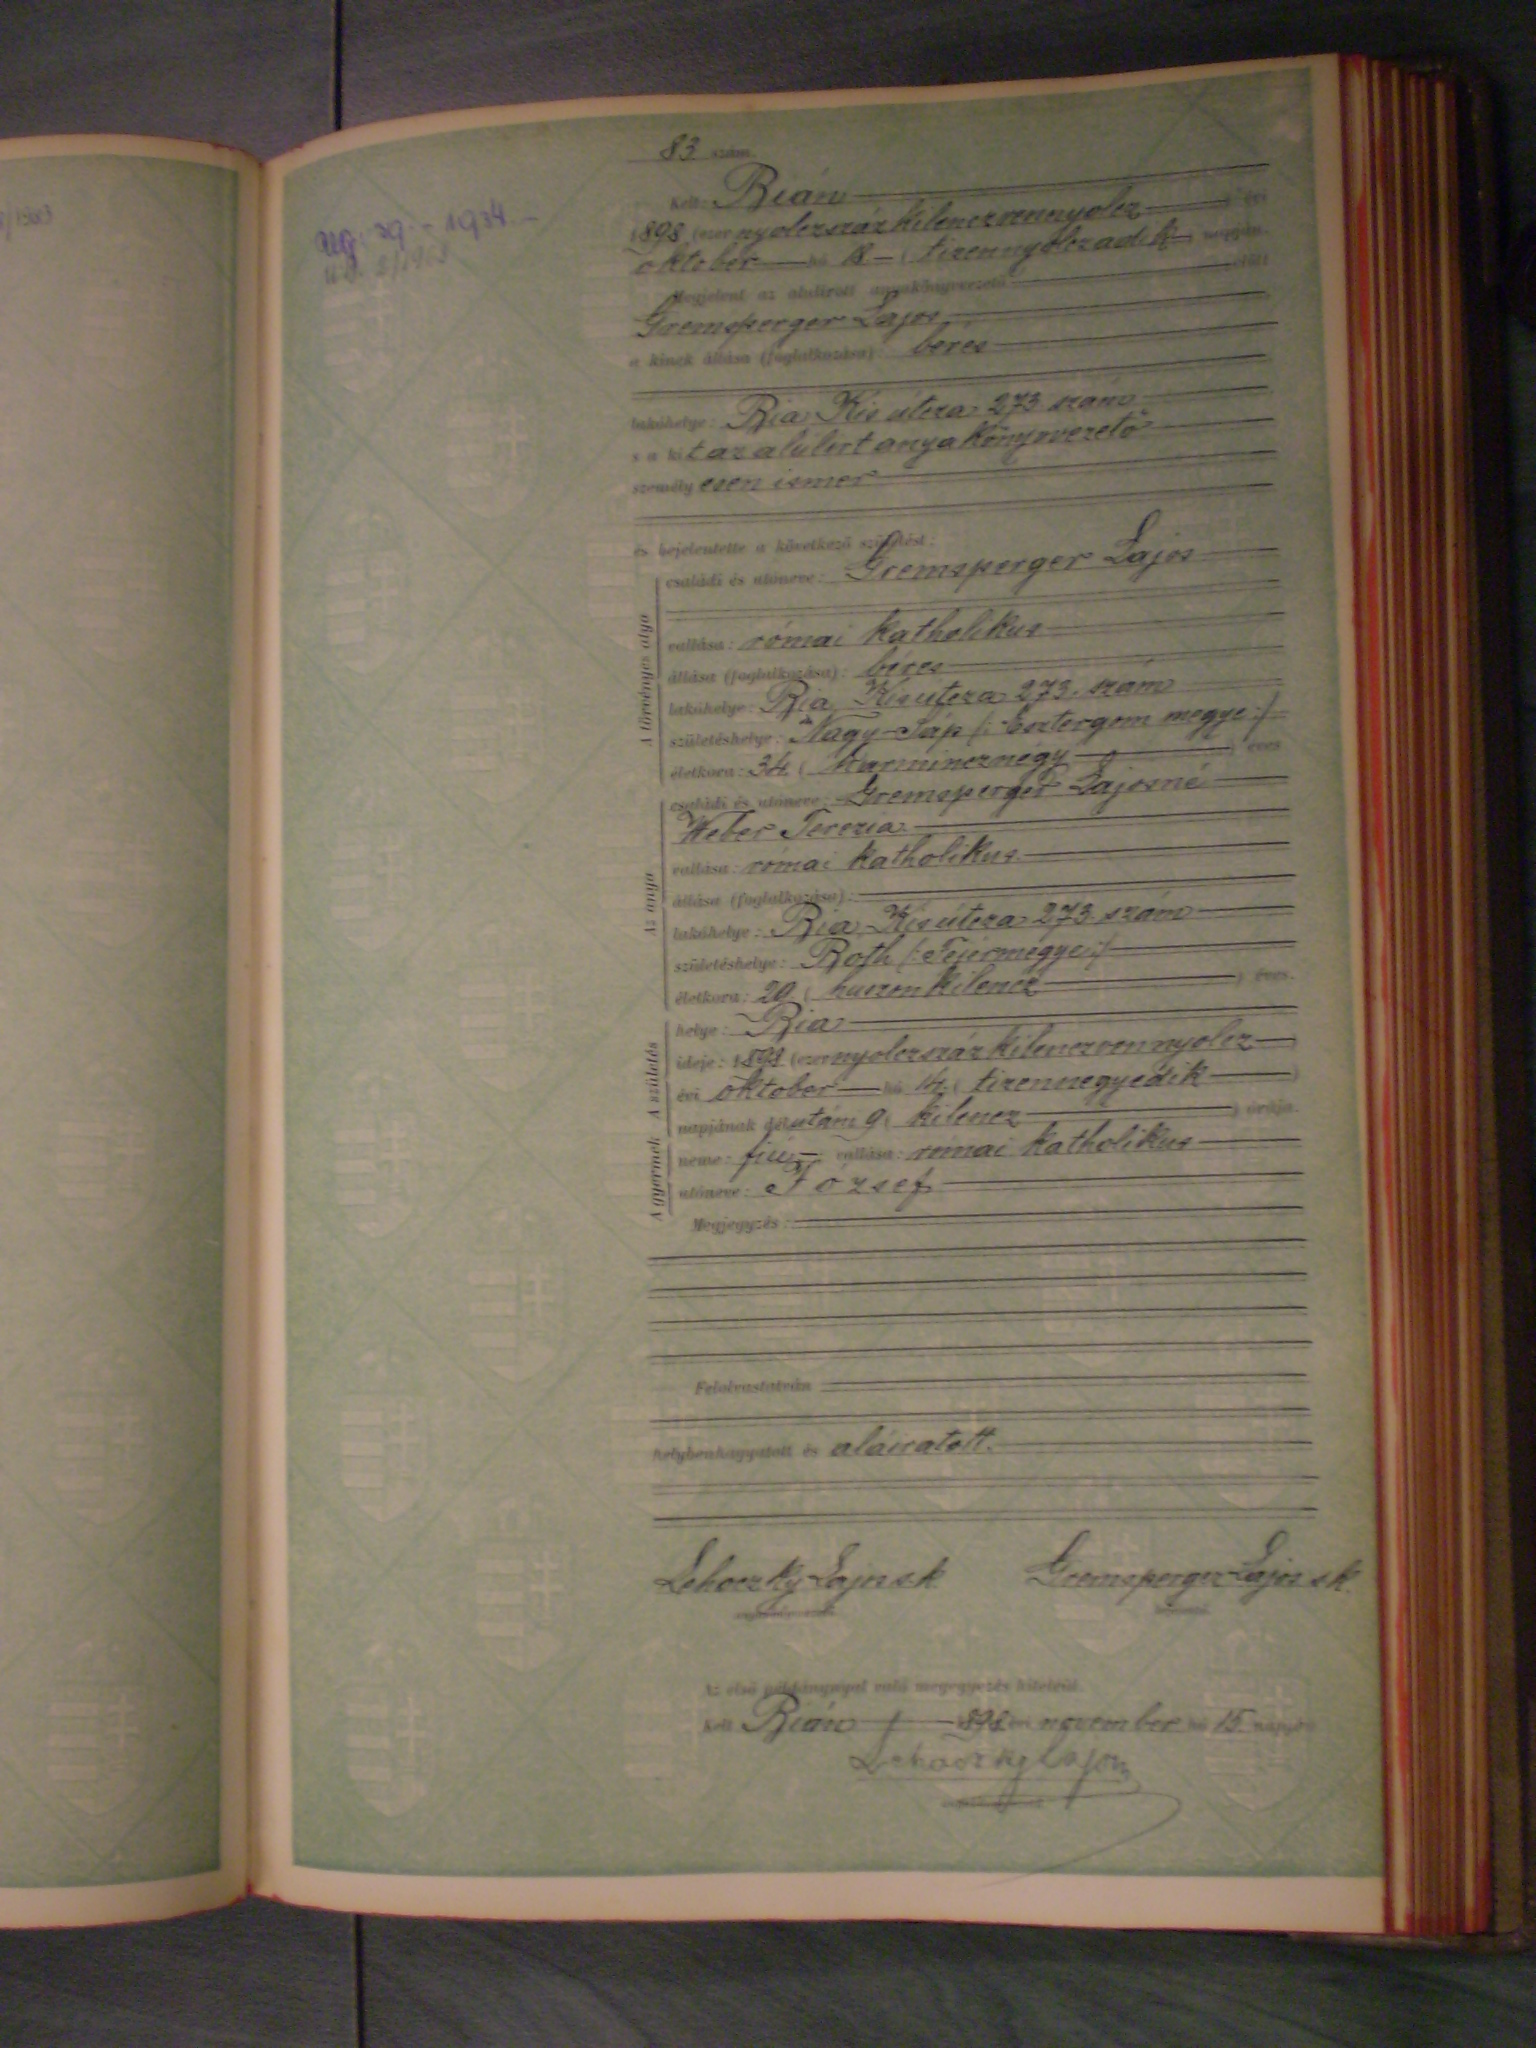 83 szám.
Kelt: Bián
1898 (ezer nyolczszáz kilenczvennyolcz) évi
október hó 18 (tizennyolczadik) napján.
Megjelent az alulirott anyakönyvvezető előtt
Gremsperger Lajos
a kinek állása (foglalkozása) béres
lakóhelye: Bia Kis útcza 273. szám
s a kit az alulirt anyakönyvvezető
személyesen ismer
és bejelentette a következő születést:
A törvényes atya
családi és utóneve: Gremsperger Lajos
vallása: római katholikus
állása (foglalkozása): béres
lakóhelye: Bia, Kis útcza 273. szám
születéshelye: Nagy-Sáp (: Esztergom megye :)
életkora: 34 (harmincznégy) éves
Az anya
családi és utóneve: Gremsperger Lajosné
Weber Terezia
vallása: római katholikus
állása (foglalkozása):
lakóhelye: Bia Kis útcza 273. szám
születéshelye: Both (: Fejérmegye :)
életkora: 29 (huszonkilencz) éves.
A születés
helye: Bia
ideje: 1898 (ezer nyolczszáz kilenczvennyolcz)
évi október hó 14. (tizennegyedik)
napjának délután 9 (kilencz) órája.
A gyermek
neme: fiú vallása: római katholikus
utóneve: József
Megjegyzés:
Felolvastatván
helybenhagyatott és aláiratott.
Lehoczky Lajos sk Gremsperger Lajos sk.
Az első példánynyal való megegyezés hiteléül.
Kelt Bián 1898 évi november hó 15 napján
Lehoczky Lajos